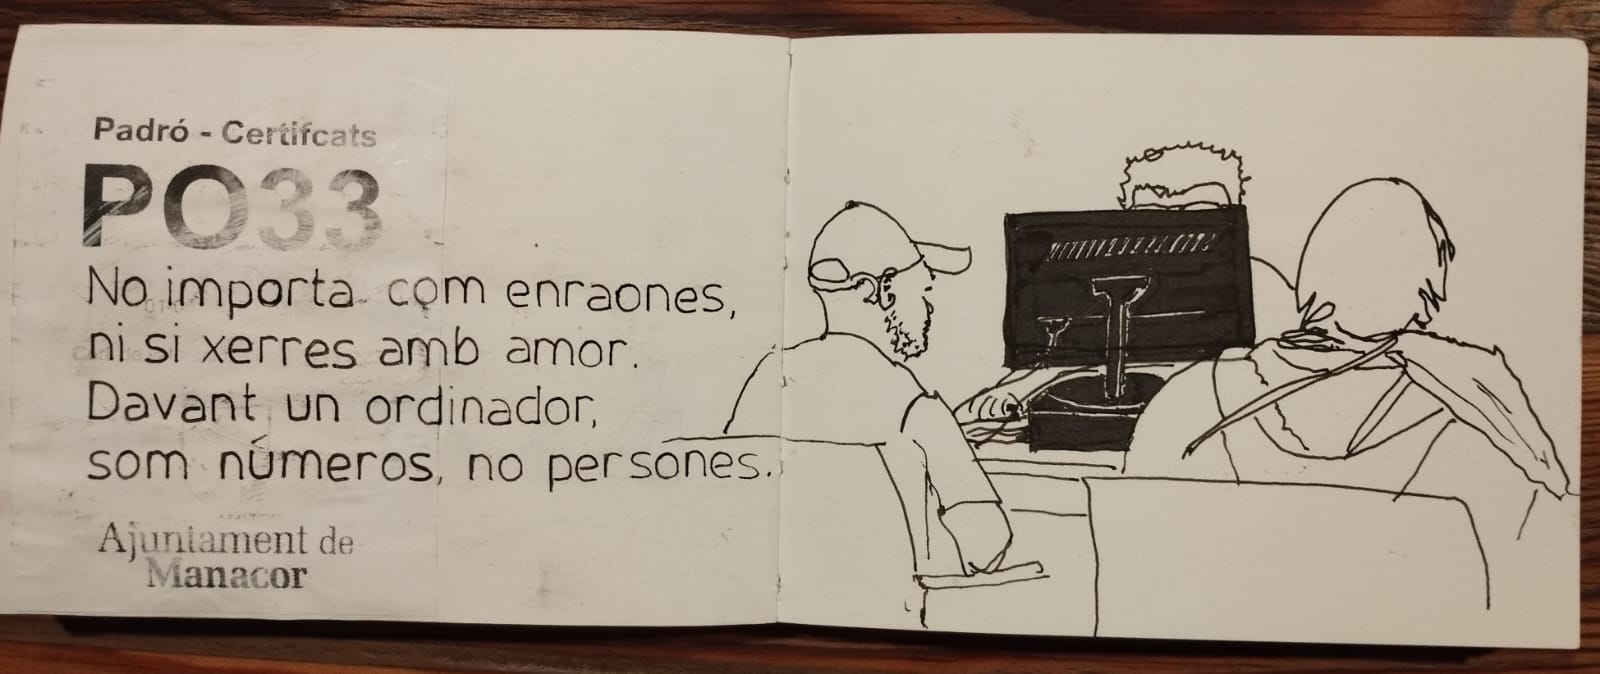 Padró - Certifcats
PO33
No importa com enraones,
ni si xerres amb amor.
Davant un ordinador,
som números, no persones.
Ajuntament de
Manacor